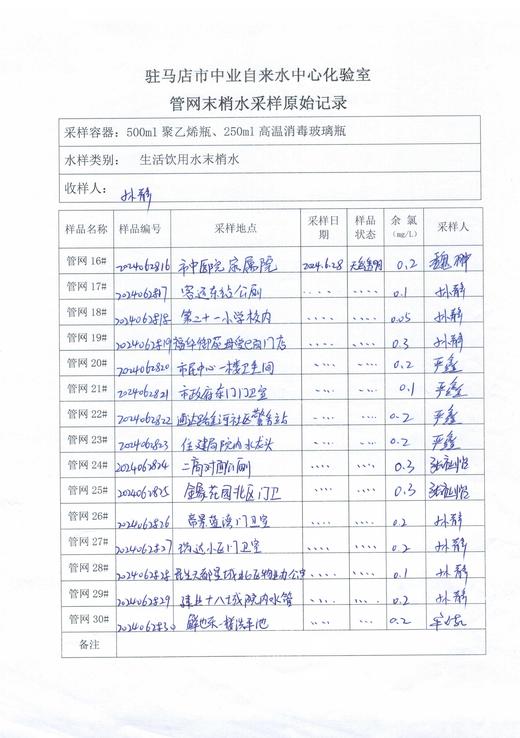 驻马店市中业自来水中心化验室
管网末梢水采样原始记录
采样容器：500ml 聚乙烯瓶、250ml 高温消毒玻璃瓶
水样类别： 生活饮用水末梢水
收样人： 孙静
样品名称 样品编号 采样地点 采样日期 样品状态 余氯(mg/L) 采样人
管网 16# 2024062816 市中医院家属院 2024.6.28 无色透明 0.2 魏翀
管网 17# 2024062817 客运东站公厕 .... .... 0.1 孙静
管网 18# 2024062818 第二十一小学校内 .... .... 0.05 孙静
管网 19# 2024062819 福华御苑 西门店 .... .... 0.3 孙静
管网 20# 2024062820 市民中心一楼卫生间 .... .... 0.2 严鑫
管网 21# 2024062821 市政府东门门卫室 .... .... 0.1 严鑫
管网 22# 2024062822 河社区警务站 .... .... 0.2 严鑫
管网 23# 2024062823 住建局院内水龙头 .... .... 0.2 严鑫
管网 24# 2024062824 二高对面公厕 .... .... 0.3
管网 25# 2024062825 金象花园北区门卫 .... .... 0.3
管网 26# 2024062826 帝景蓝湾门卫室 .... .... 0.2 孙静
管网 27# 2024062827 瑞达小区门卫室 .... .... 0.2 孙静
管网 28# 2024062828 天都星城北区物业办公室 .... .... 0.1 孙静
管网 29# 2024062829 建业十八城院内水管 .... .... 0.2 孙静
管网 30# 2024062830 一楼洗手池 .... .... 0.2
备注